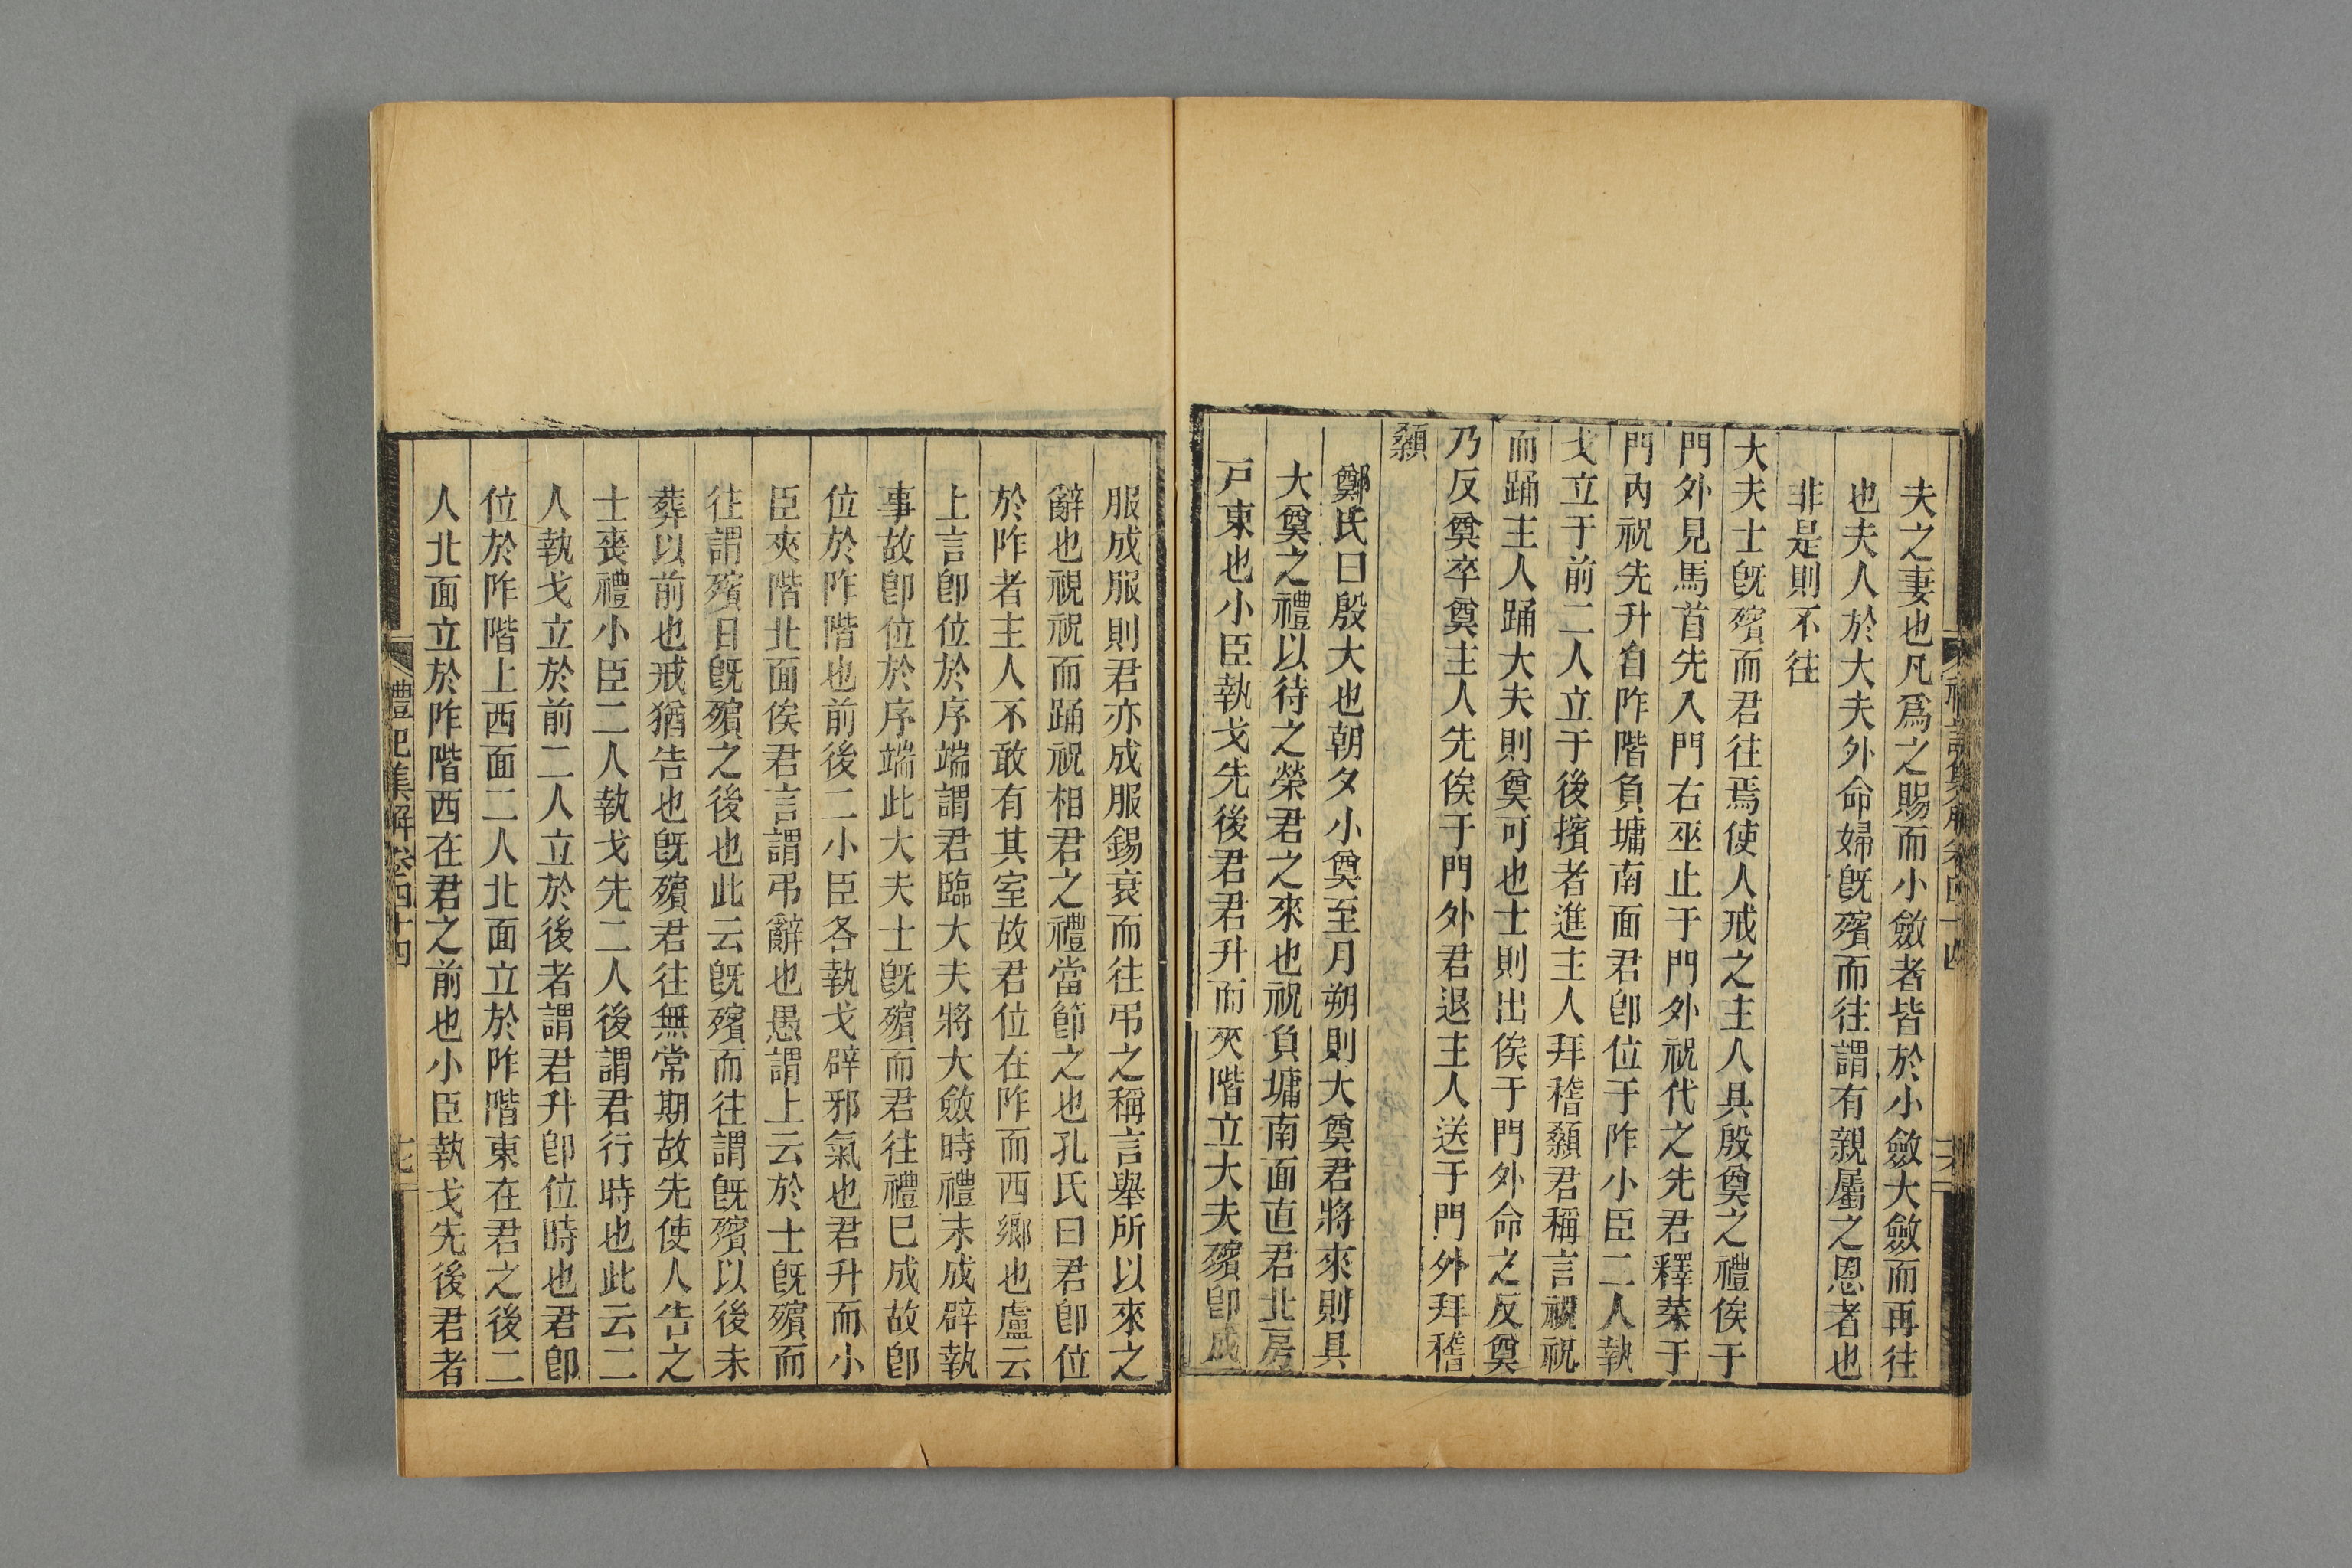 夫之妻也凡爲之賜而小斂者皆於小斂大斂而再往
也夫人於大夫外命婦旣殯而往謂有親屬之恩者也
非是則不往
大夫士旣殯而君往焉使人戒之主人具殷奠之禮俟于
門外見馬首先入門右巫止于門外祝代之先君釋菜于
門內祝先升自阼階負墉南面君卽位于阼小臣二人執
戈立于前二人立于後擯者進主人拜稽顙君稱言視祝
而踊主人踊大夫則奠可也士則出俟于門外命之反奠
乃反奠卒奠主人先俟于門外君退主人送于門外拜稽
顙
鄭氏曰殷大也朝夕小奠至月朔則大奠君將來則具
大奠之禮以待之榮君之來也祝負墉南面直君北房
戸東也小臣執戈先後君君升而夾階立大夫殯卽成
服成服則君亦成服錫衰而往弔之稱言舉所以來之
辭也視祝而踊祝相君之禮當節之也孔氏曰君卽位
於阼者主人不敢有其室故君位在阼而西鄉也盧云
上言卽位於序端謂君臨大夫將大斂時禮未成辟執
事故卽位於序端此大夫士旣殯而君往禮已成故卽
位於阼階也前後二小臣各執戈辟邪氣也君升而小
臣夾階北面俟君言謂弔辭也愚謂上云於士旣殯而
往謂殯日旣殯之後也此云旣殯而往謂旣殯以後未
葬以前也戒猶告也旣殯君往無常期故先使人告之
士喪禮小臣二人執戈先二人後謂君行時也此云二
人執戈立於前二人立於後者謂君升卽位時也君卽
位於阼階上西面二人北面立於阼階東在君之後二
人北面立於阼階西在君之前也小臣執戈先後君者
禮記集解卷四十四